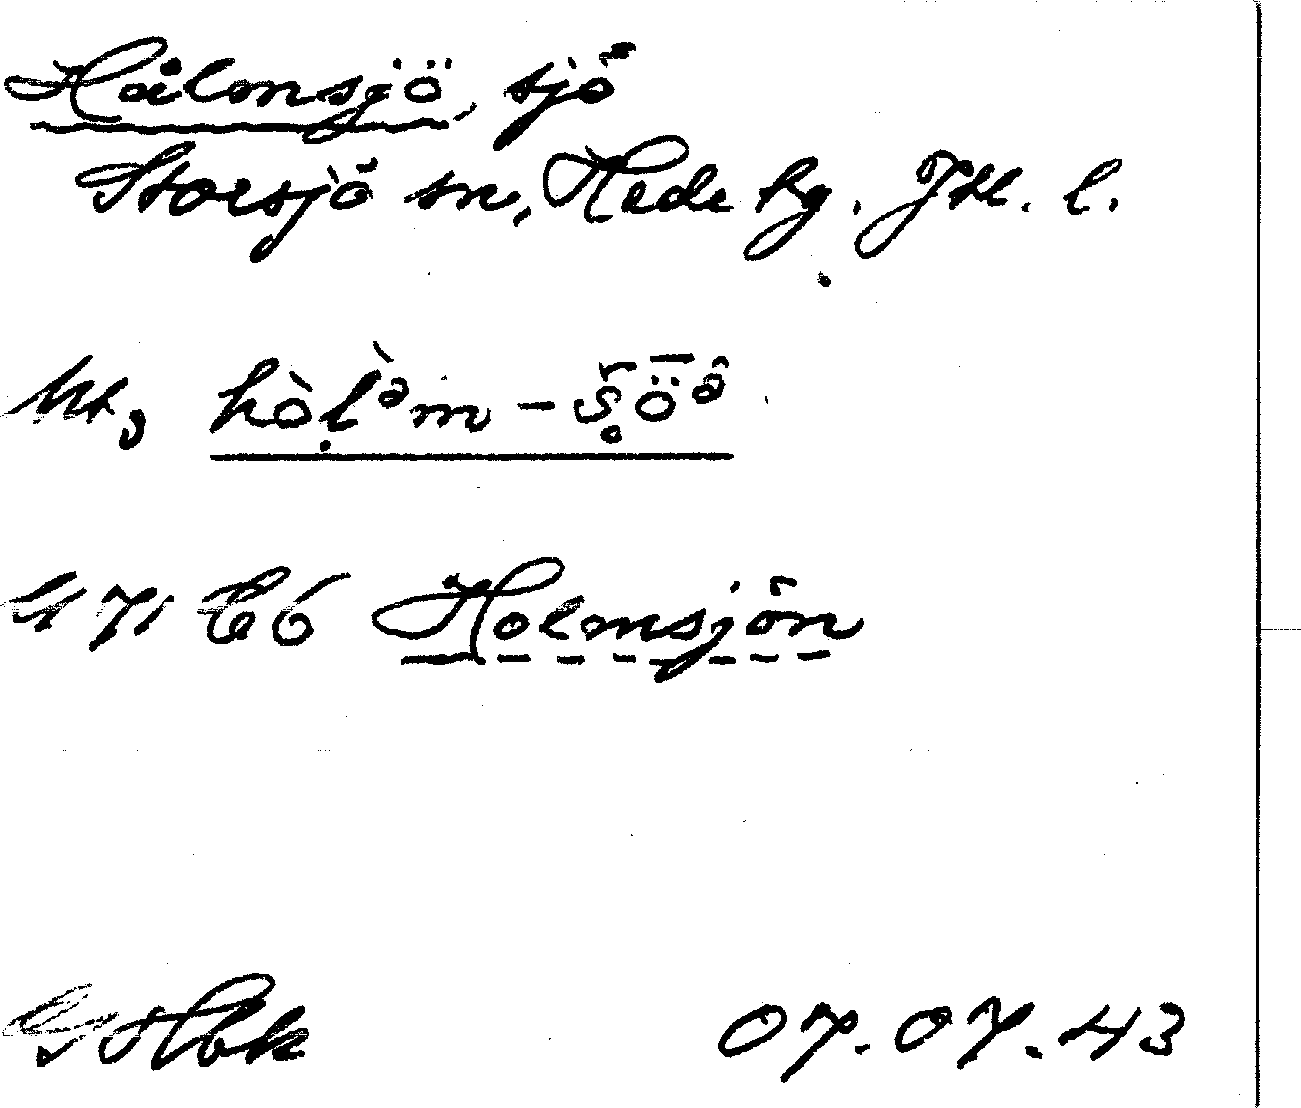 Hålmsjö, sjö
Storsjö sn, Hede tg. Jtl. l.
Ut, hòḷ̀ᵊm - š̥ȫᵊ̂
G 71 C6 Holmsjön
07.07.43